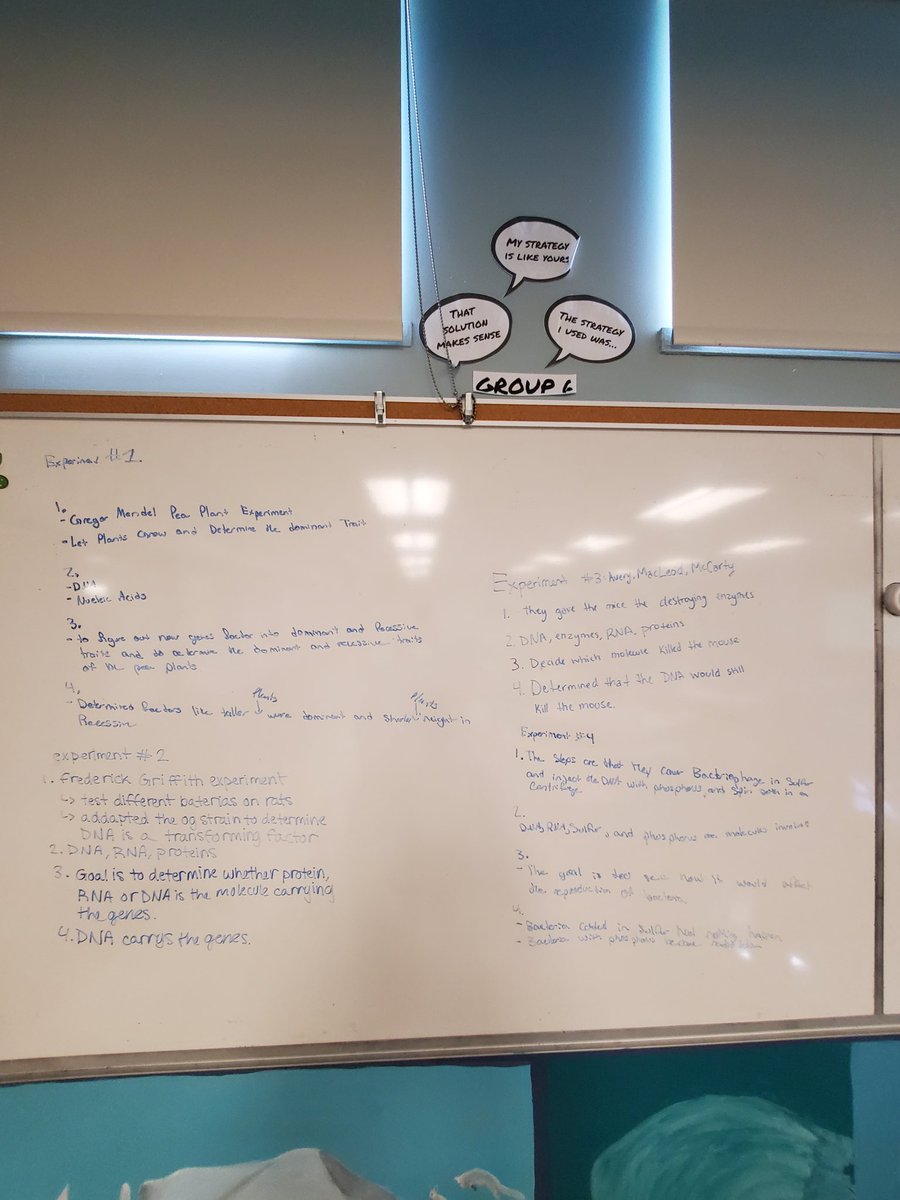 MY STRATEGY
IS LIKE YOURS
THAT
SOLUTION
MAKES SENSE
THE STRATEGY
I USED WAS...
GROUP 6
Experiment #1.
1.
- Gregor Mendel Pea Plant Experiment
- Let Plants Grow and Determine the dominant Trait
2.
- DNA
- Nucleic Acids
3.
- to figure out how genes factor into dominant and Recessive
traits and to determine the dominant and recessive traits
of the pea plants
4.
Plants
Plants
- Determined factors like taller were dominant and shorter height in
Recessive
experiment #2
1. Frederick Griffith experiment
↳ test different baterias on rats
↳ addapted the og strain to determine
DNA is a transforming factor
2. DNA, RNA, proteins
3. Goal is to determine whether protein,
RNA or DNA is the molecule carrying
the genes.
4. DNA carrys the genes.
Experiment #3: Avery, MacLeod, McCarty
1. They gave the mice the destroying enzymes
2. DNA, enzymes, RNA, proteins
3. Decide which molecule killed the mouse
4. Determined that the DNA would still
kill the mouse.
Experiment #4
1. The steps are that they cover Bacteriophage in Sulfur
and inject the DNA with phosphorus, and spin them in a
Centrifuge
2.
DNA, RNA, Sulfur, and phosphorus are molecules
3.
- The goal is to see how it would affect
the reproduction of bacteria
4.
- Bacteria coated in sulfur had nothing happen
- Bacteria with phosphorus became